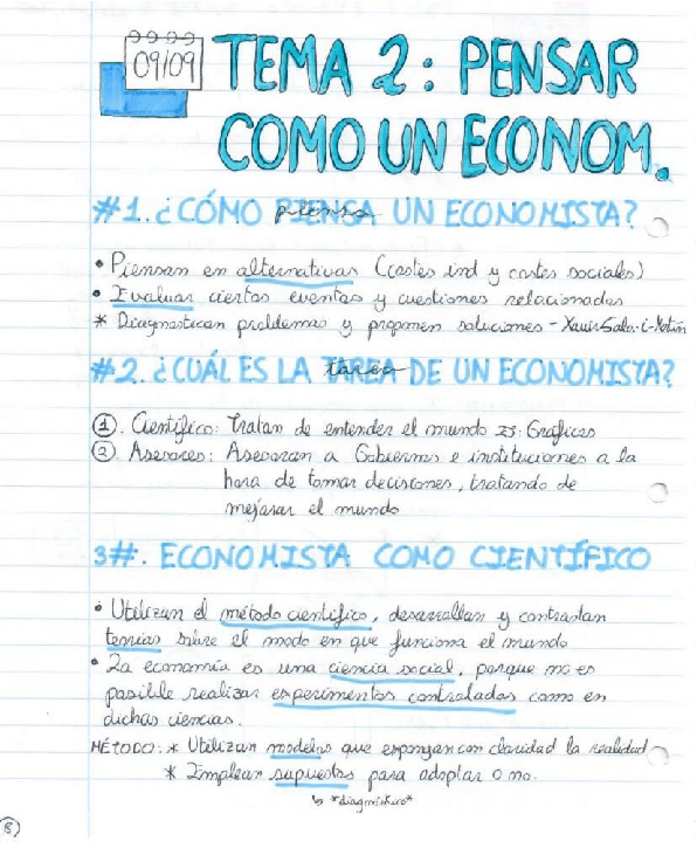 09/09
TEMA 2: PENSAR
COMO UN ECONOM.
#1. ¿CÓMO PIENSA UN ECONOMISTA?
• Piensan en alternativas (costes ind y costes sociales)
• Evaluar ciertos eventos y cuestiones relacionadas
* Diagnostican problemas y proponen soluciones - Xavir Sala-i-Matin
#2. ¿CUÁL ES LA TAREA DE UN ECONOMISTA?
1. Científico: Tratan de entender el mundo Gráficos
2. Asesores: Asesoran a Gobiernos e instituciones a la
hora de tomar decisiones, tratando de
mejorar el mundo
3#. ECONOMISTA COMO CIENTÍFICO
• Utilizan el método científico, desarrollan y contrastan
teorías sobre el modo en que funciona el mundo
• La economía es una ciencia social, porque no es
posible realizar experimentos controlados como en
dichas ciencias.
MÉTODO: * Utilizan modelos que expongan con claridad la realidad
* Emplean supuestos para adoptar o no.
↳ *diagnóstico*
8